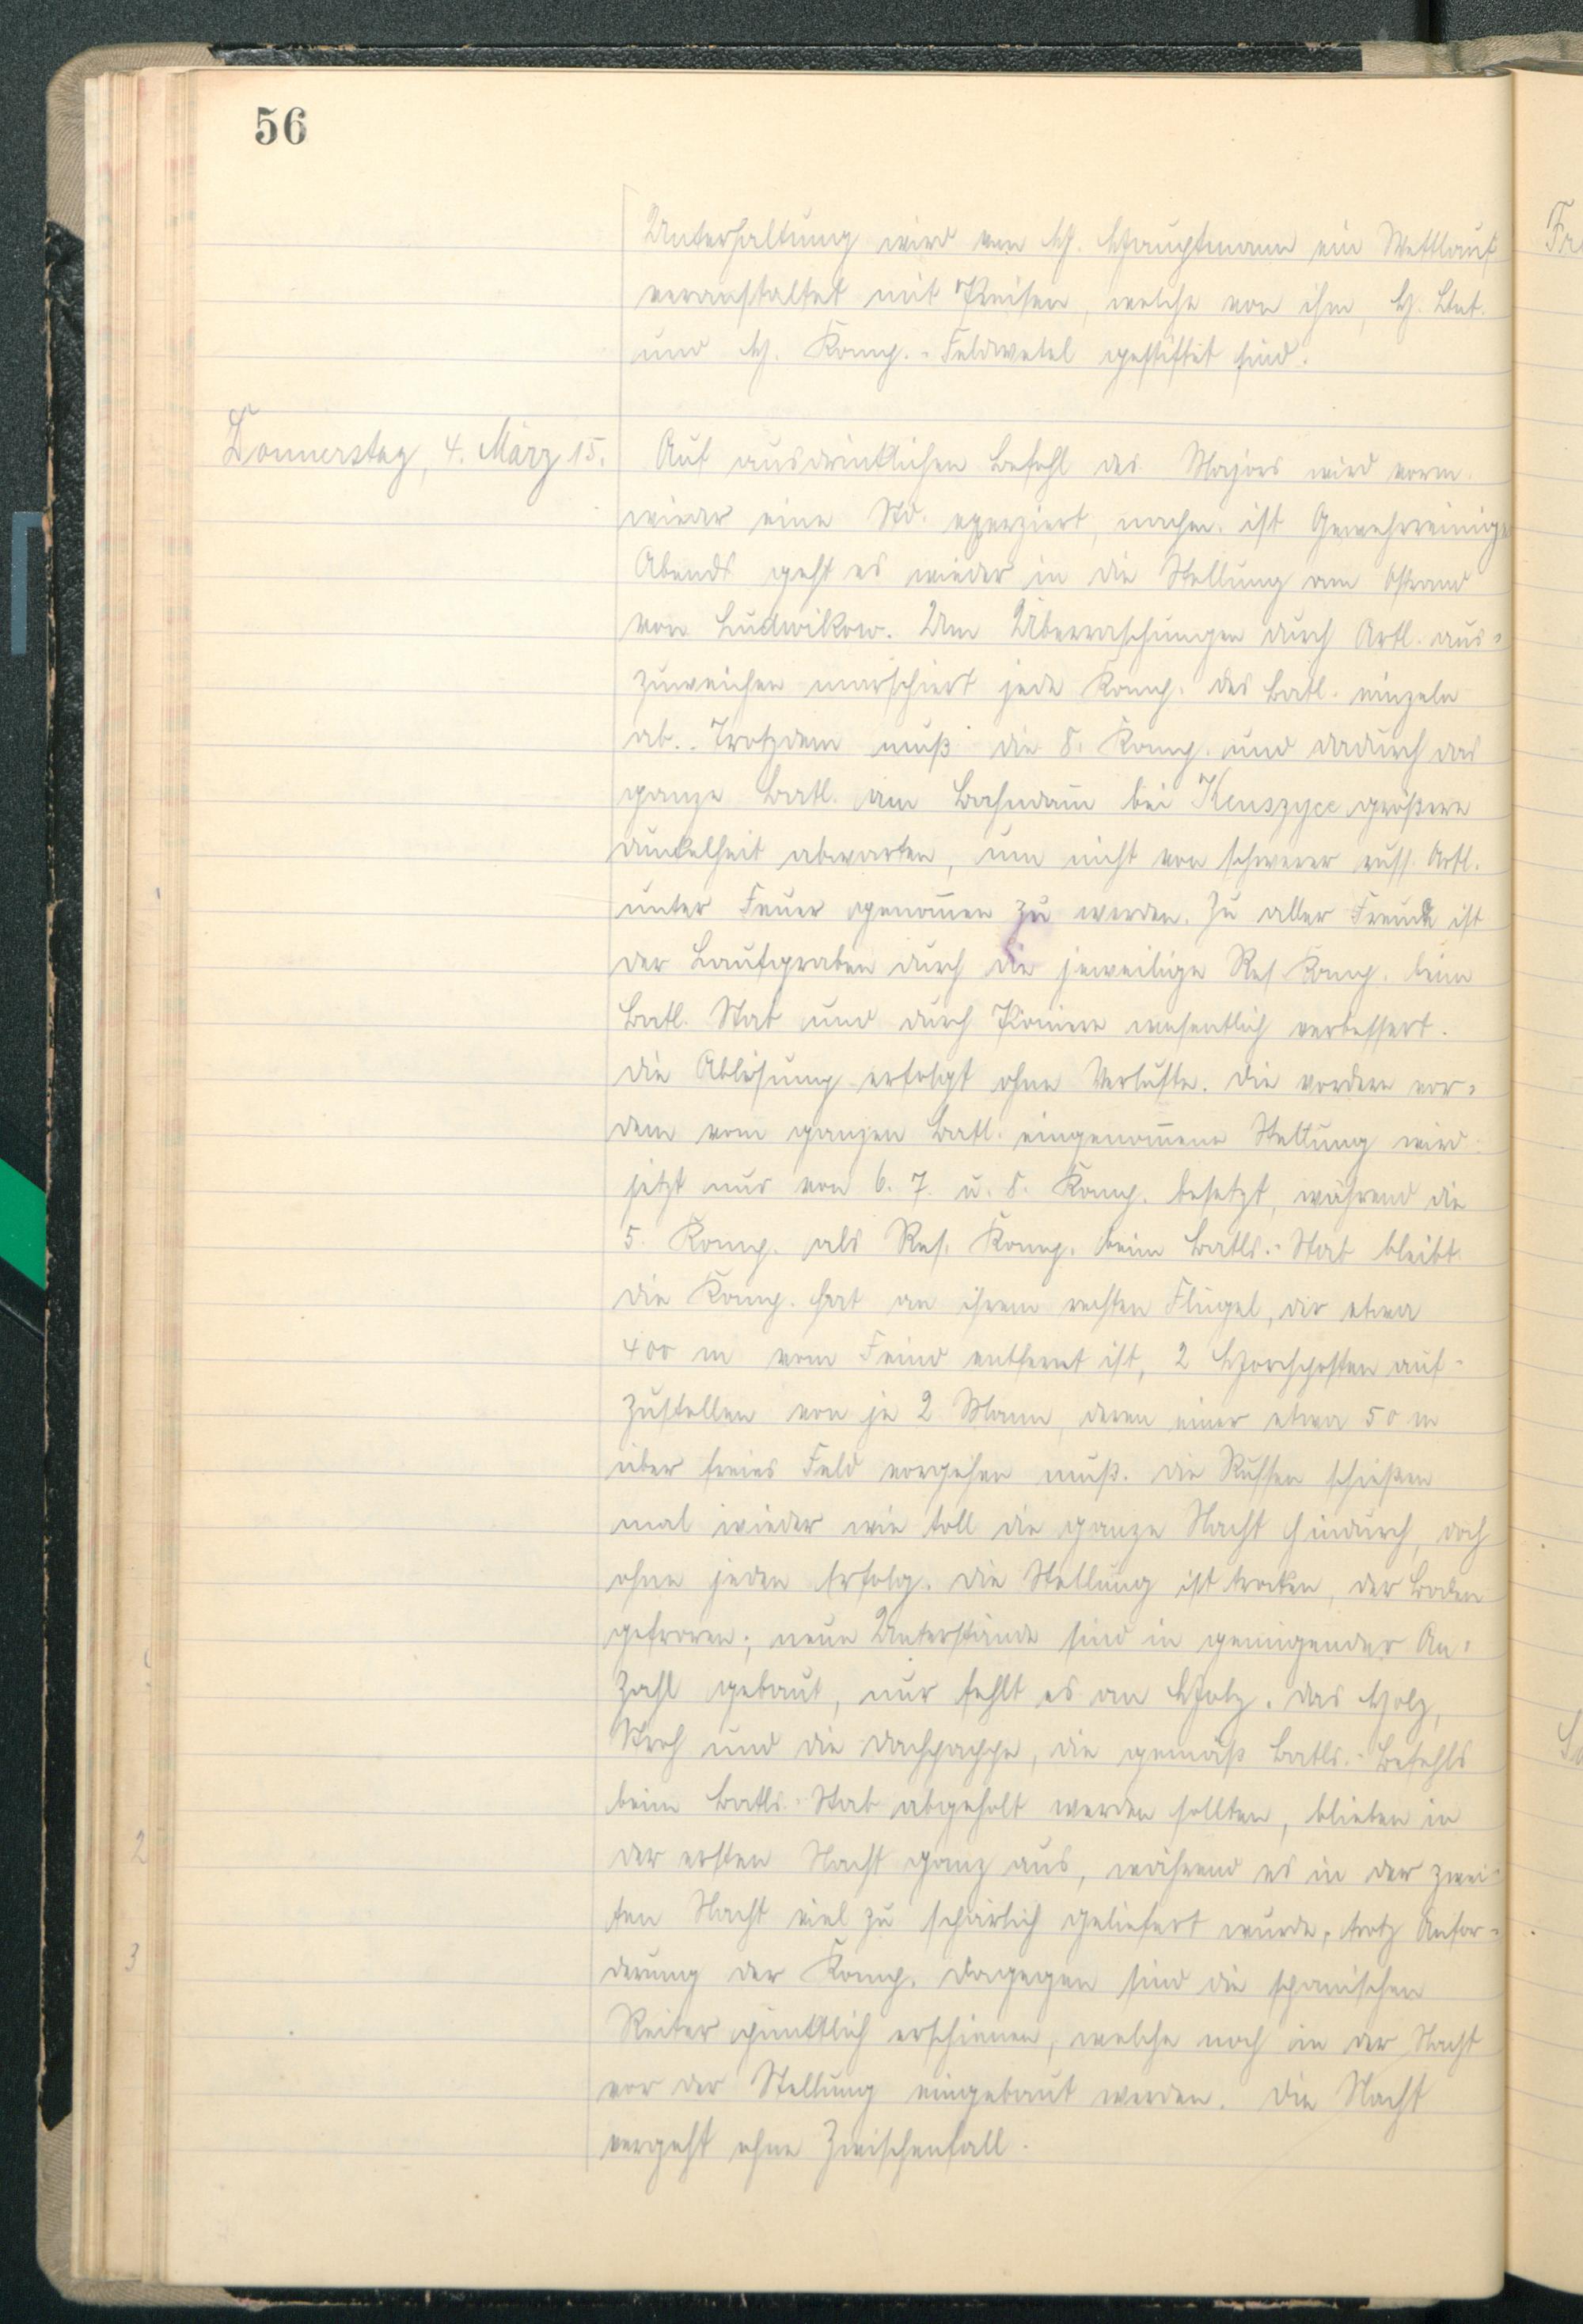 56
Unterhaltung wird von H. Hauptmann ein Wettlauf
veranstaltet mit Preisen, welche von ihm, H. Ltnt.
und H. Komp.-Feldwebel gestiftet sind.
Donnerstag, 4. März 15.
Auf ausdrücklichen Befehl des Majors wird vorm.
wieder eine Std. exerziert, nachm. ist Gewehrreinigen
Abends geht es wieder in die Stellung am Ostrand
von Ludwikow. Um Überraschungen durch Artl. aus-
zuweichen marschiert jede Komp. des Batl. einzeln
ab. Trotzdem muß die 8. Komp. und dadurch das
ganze Batl. am Bahndam̄ bei Kenszyce größere
Dunkelheit abwarten, um nicht von schwerer russ. Artl.
unter Feuer genom̄en zu werden. Zu aller Freude ist
der Laufgraben durch die jeweilige Res. Komp. beim
Batl. Stab und durch Pioniere wesentlich verbessert.
Die Ablösung erfolgt ohne Verluste. Die vordere vor-
dem vom ganzen Batl. eingenom̄ene Stellung wird
jetzt nur von 6. 7. u. 8. Komp. besetzt, während die
5. Komp. als Res. Komp. beim Batls.-Stab bleibt.
Die Komp. hat an ihrem rechten Flügel, der etwa
400 m vom Feind entfernt ist, 2 Horchposten auf-
zustellen von je 2 Mann, deren einer etwa 50 m
über freies Feld vorgehen muß. Die Russen schießen
mal wieder wie toll die ganze Nacht hindurch, doch
ohne jeden Erfolg. Die Stellung ist trocken, der Boden
gefroren; neue Unterstände sind in genügender An-
zahl gebaut, nur fehlt es an Holz. Das Holz,
Stroh und die Dachpappe, die gemäß Batls.-Befehls
beim Batls.-Stab abgeholt werden sollten, blieben in
der ersten Nacht ganz aus, während es in der zwei-
ten Nacht viel zu spärlich geliefert wurde, trotz Anfor-
derung der Komp. Dagegen sind die spanischen
Reiter pünktlich erschienen, welche noch in der Nacht
vor der Stellung eingebaut werden. Die Nacht
vergeht ohne Zwischenfall.
2
3